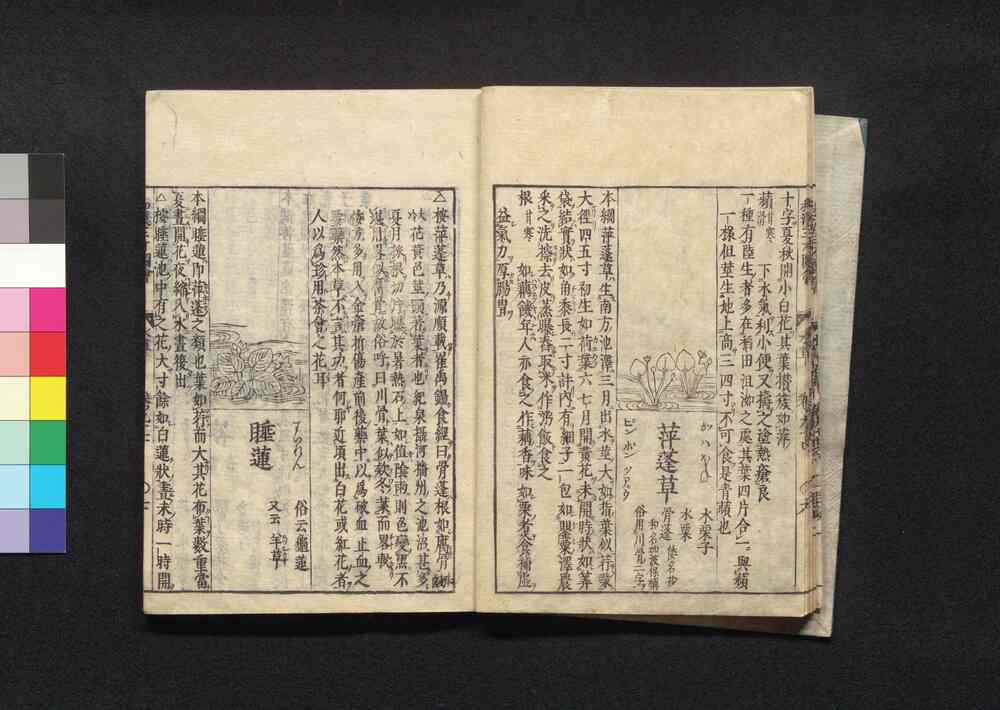 十字夏秋開小白花其葉攅簇如萍
蘋 甘寒 下水氣利小便又擣之塗熱瘡良
一種有陸生者多在稻田沮洳之處其葉四片合一與蘋
一様但莖生地上高三四寸不可食是青蘋也
かハほね
萍蓬草
ピン ポン ツアウ
水栗子
水粟
骨蓬
俗用川骨二字
本綱萍蓬草生南方池澤三月出水莖大如指葉似荇葉
大徑四五寸初生如荷葉六七月開黄花未開時狀如算
袋結實狀如角黍長二寸許內有細子一包如罌粟澤農
采之洗擦去皮蒸曝舂取米作粥飯食之
根 甘寒 如藕饑年人亦食之作藕香味如栗子食補虛
益氣力厚腸胃
△按萍蓬草乃源順載崔禹錫食經曰骨蓬根如腐骨
花黄色莖頭着葉者也紀泉攝河播州之池波甚多
夏月採根切片曝於暑熱石上如值陰雨則色變黒不
故俗呼曰川骨葉似欵冬葉而畧軟
多用入金瘡折傷産前後藥中以爲破血止血之
要藥然本草不言其功者何耶近頃出白花或紅花者
人以爲珍用茶會之花耳
睡蓮
俗云龜蓮
又云 羊草
本綱睡蓮卽萍蓬之類也葉如荇而大其花布葉數重當
夏晝開花夜縮入水晝復出
△按睡蓮池中有之花大寸餘如白蓮狀毎未時一時開